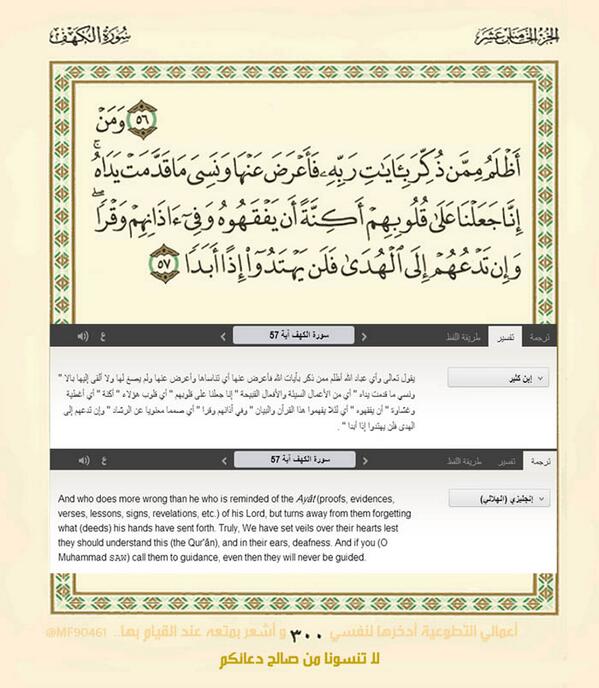 سورة الكهف الجزء الخامس عشر
٥٦ وَمَنْ
أَظْلَمُ مِمَّن ذُكِّرَ بِـَٔايَٰتِ رَبِّهِۦ فَأَعْرَضَ عَنْهَا وَنَسِىَ مَا قَدَّمَتْ يَدَاهُ ۚ
إِنَّا جَعَلْنَا عَلَىٰ قُلُوبِهِمْ أَكِنَّةً أَن يَفْقَهُوهُ وَفِىٓ ءَاذَانِهِمْ وَقْرًا ۖ
وَإِن تَدْعُهُمْ إِلَى ٱلْهُدَىٰ فَلَن يَهْتَدُوٓا۟ إِذًا أَبَدًا ٥٧
ترجمة تفسير طريقة اللفظ سورة الكهف آية 57 ع
إبن كثير
يقول تعالى وأي عباد الله أظلم ممن ذكر بآيات الله فأعرض عنها أي تناساها وأعرض عنها ولم يصغ لها ولا ألقى إليها بالا "
ونسي ما قدمت يداه " أي من الأعمال السيئة والأفعال القبيحة " إنا جعلنا على قلوبهم " أي قلوب هؤلاء " أكنة " أي أغطية
وغشاوة " أن يفقهوه " أي لئلا يفهموا هذا القرآن والبيان " وفي آذانهم وقرا " أي صمما معنويا عن الرشاد " وإن تدعهم إلى
الهدى فلن يهتدوا إذا أبدا " .
ترجمة تفسير طريقة اللفظ سورة الكهف آية 57 ع
إنجليزي (الهلالي)
And who does more wrong than he who is reminded of the Ayât (proofs, evidences,
verses, lessons, signs, revelations, etc.) of his Lord, but turns away from them forgetting
what (deeds) his hands have sent forth. Truly, We have set veils over their hearts lest
they should understand this (the Qur'ân), and in their ears, deafness. And if you (O
Muhammad SAW) call them to guidance, even then they will never be guided.
أعمالي التطوعية أدخرها لنفسي ٣٠٠ و أشعر بمتعه عند القيام بها.. @MF90461
لا تنسونا من صالح دعائكم